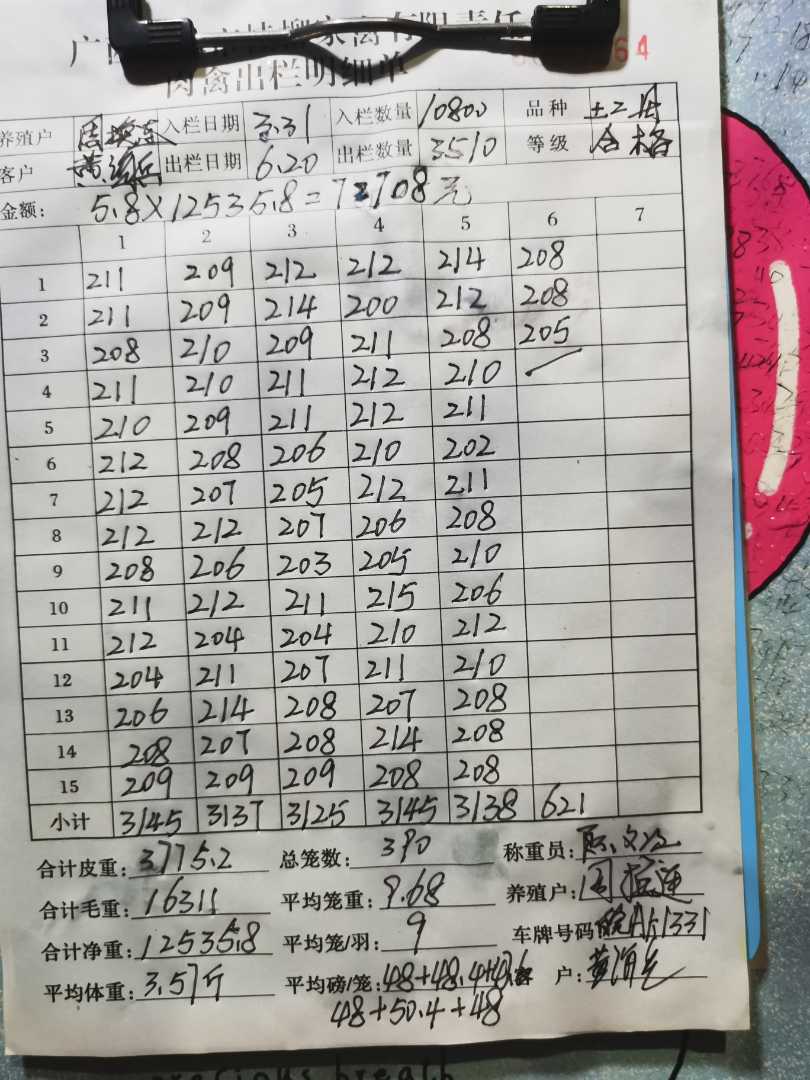 肉禽出栏明细单
64
养殖户 入栏日期 3.31 入栏数量 10800 品种 土2
客户 出栏日期 6.20 出栏数量 3510 等级 合格
金额: 5.8×12535.8=72708元
1 2 3 4 5 6 7
1 211 209 212 212 214 208
2 211 209 214 200 212 208
3 208 210 209 211 208 205
4 211 210 211 212 210
5 210 209 211 212 211
6 212 208 206 210 202
7 212 207 205 212 211
8 212 212 207 206 208
9 208 206 203 205 210
10 211 212 211 215 206
11 212 204 204 210 212
12 204 211 207 211 210
13 206 214 208 207 208
14 208 207 208 214 208
15 209 209 209 208 208
小计 3145 3137 3125 3145 3138 621
合计皮重: 3775.2 总笼数: 390 称重员:
合计毛重: 16311 平均笼重: 9.68 养殖户: 周
合计净重: 12535.8 平均笼/羽: 9 车牌号码 皖A51331
平均体重: 3.57斤 平均磅/笼: 48+48.4+ 户: 黄
48+50.4+48